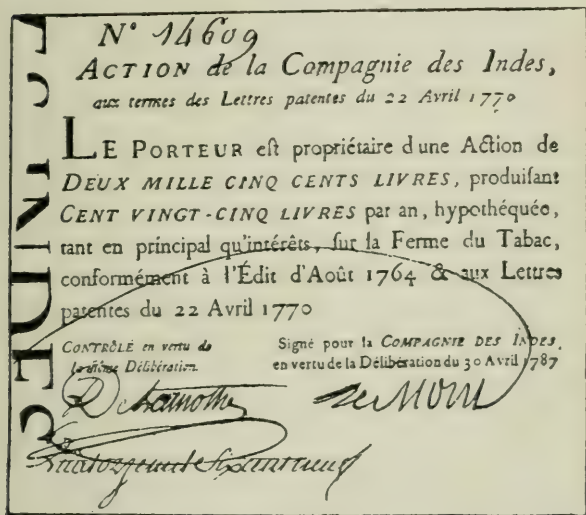 N° 14609
ACTION de la Compagnie des Indes,
aux termes des Lettres patentes du 22 Avril 1770
LE PORTEUR eſt propriétaire d'une Action de
DEUX MILLE CINQ CENTS LIVRES, produiſant
CENT VINGT-CINQ LIVRES par an, hypothéquée,
tant en principal qu'intérêts, ſur la Ferme du Tabac,
conformément à l'Édit d'Août 1764 & aux Lettres
patentes du 22 Avril 1770
CONTRÔLÉ en vertu de
la même Délibération.
Signé pour la COMPAGNIE DES INDES,
en vertu de la Délibération du 30 Avril 1787